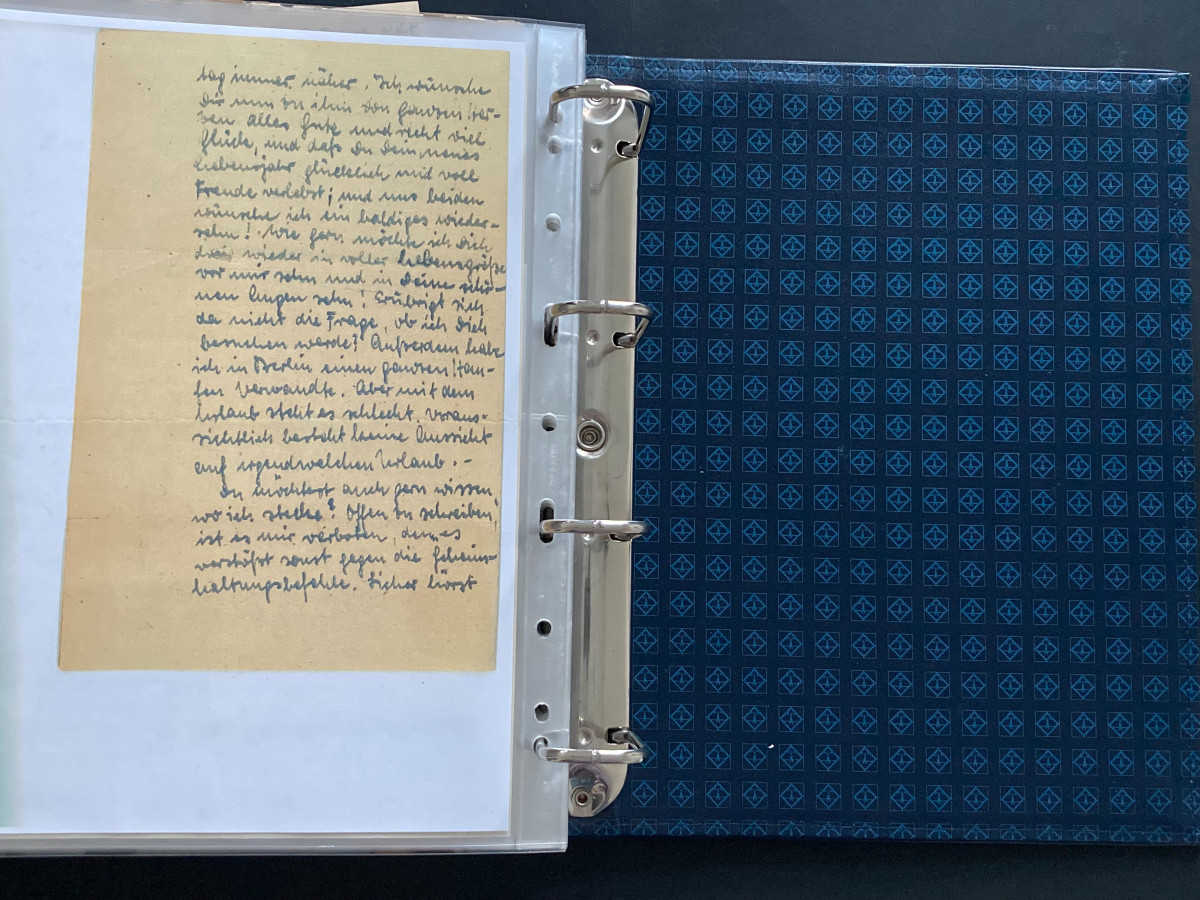 tag immer näher. Ich wünsche
Dir nun zu ihm von ganzem Her-
zen alles Gute und recht viel
Glück, und daß Du Dein neues
Lebensjahr glücklich und voll
Freude verlebst; und uns beiden
wünsche ich ein baldiges wieder-
sehn! Wie gern möchte ich Dich
wieder in voller Lebensgröße
vor mir sehn und in Deine schö-
nen Augen sehn! Erübrigt sich
da nicht die Frage, ob ich Dich
besuchen werde? Außerdem habe
ich in Berlin einen ganzen Hau-
fen Verwandte. Aber mit dem
Urlaub steht es schlecht. Voraus-
sichtlich besteht keine Aussicht
auf irgendwelchen Urlaub. -
Du möchtest auch gern wissen,
wo ich stecke? Offen zu schreiben,
ist es mir verboten, denn es
verstößt sonst gegen die Geheim-
haltungsbefehle. Sicher hörst